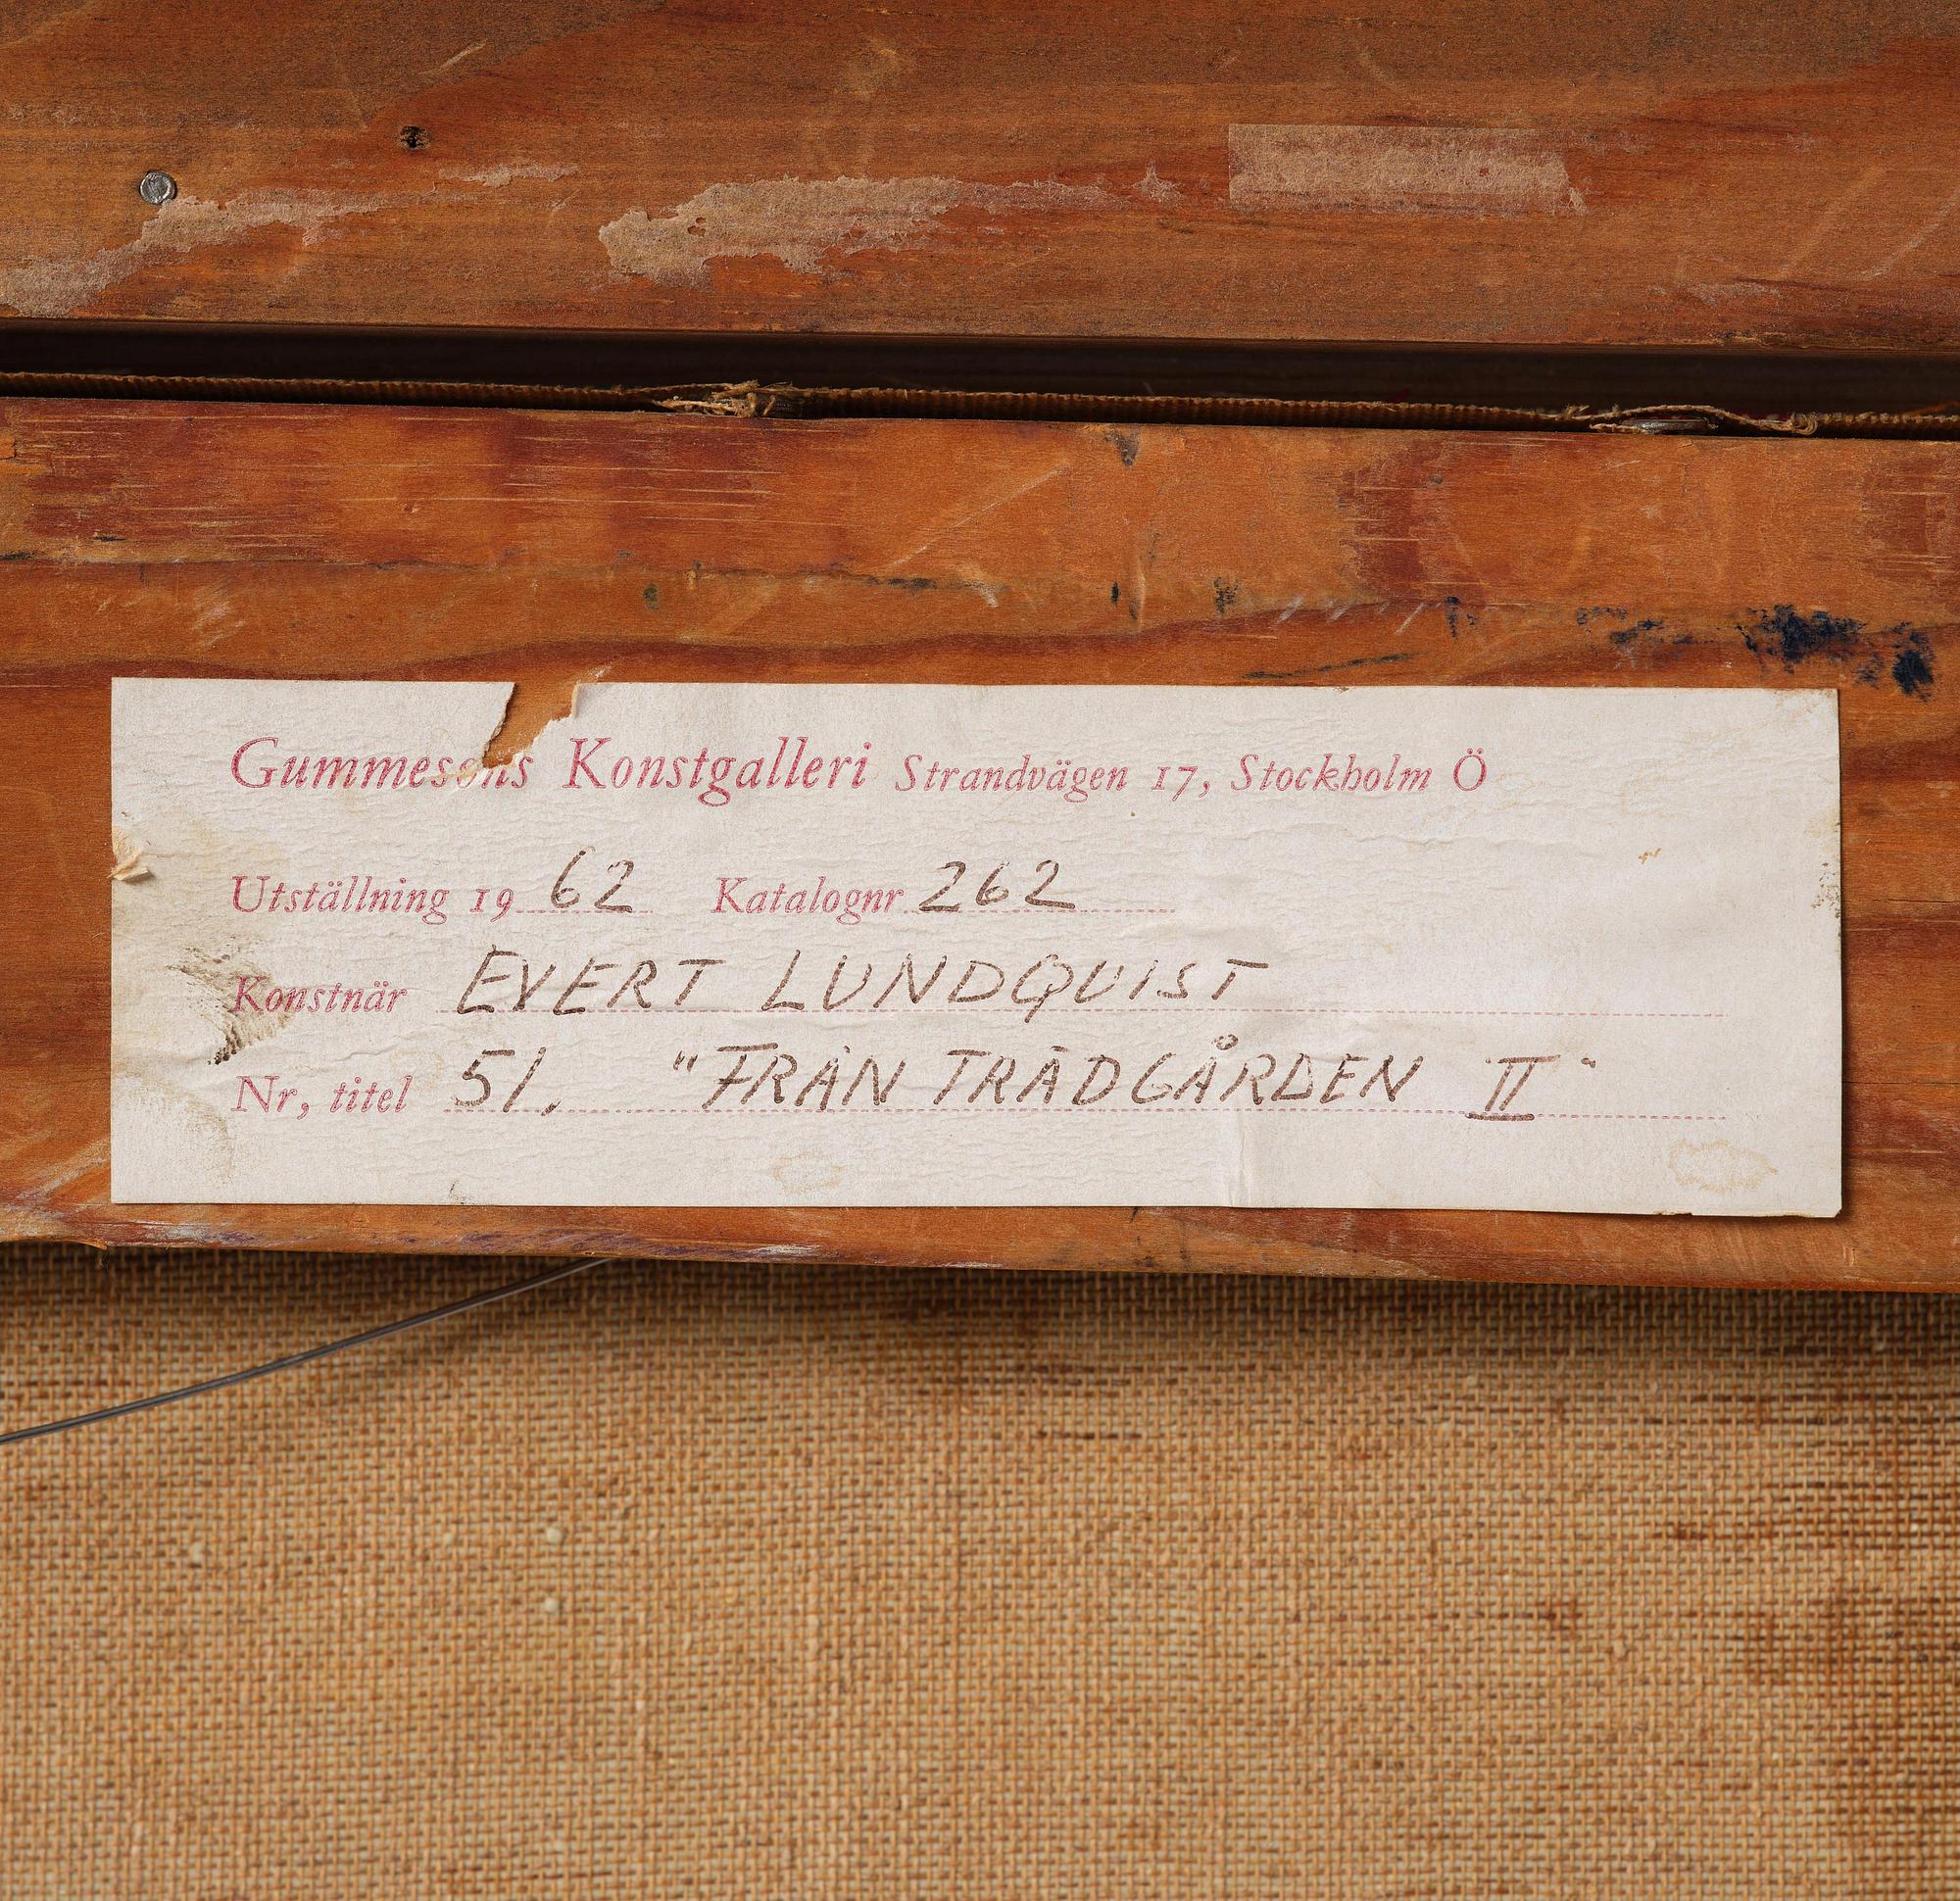 Gummesons Konstgalleri Strandvägen 17, Stockholm Ö
Utställning 19 62 Katalognr 262
Konstnär EVERT LUNDQUIST
Nr, titel 51. "FRÅN TRÄDGÅRDEN II"